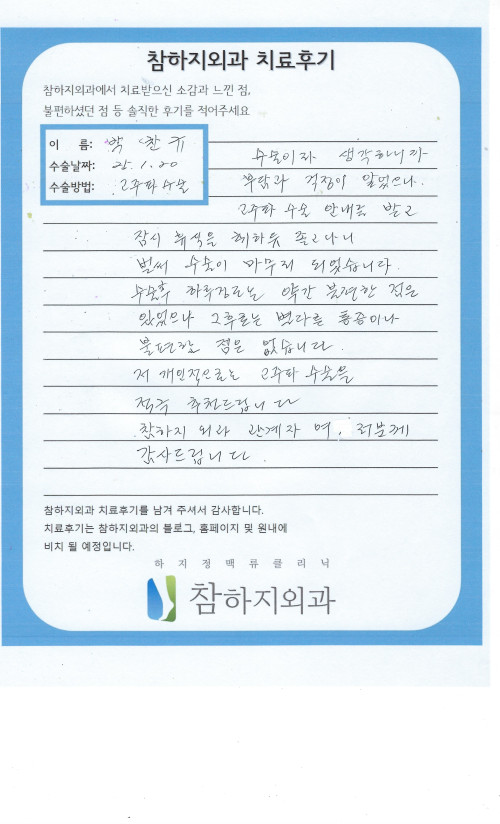 참하지외과 치료후기
참하지외과에서 치료받으신 소감과 느낀 점,
불편하셨던 점 등 솔직한 후기를 적어주세요
이 름: 박 찬 규
수술날짜: 25. 1. 20
수술방법: 고주파 수술
수술이라 생각하니까
부담과 걱정이 많았으나.
고주파 수술 안내를 받고
잠시 휴식을 취하듯 졸고나니
벌써 수술이 마무리 되었습니다.
수술후 하루정도는 약간 불편한 점은
있었으나 그후로는 별다른 통증이나
불편한 점은 없습니다.
저 개인적으로는 고주파 수술을
적극 추천드립니다
참하지 외과 관계자 여, 러분께
감사드립니다.
참하지외과 치료후기를 남겨 주셔서 감사합니다.
치료후기는 참하지외과의 블로그, 홈페이지 및 원내에
비치 될 예정입니다.
하지정맥류클리닉
참하지외과